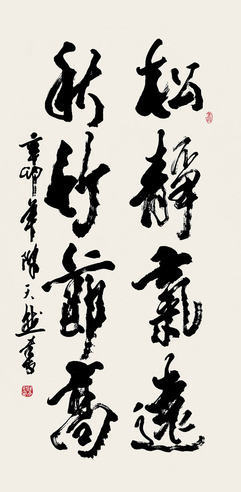 松静氣遠
秋竹節高
辛卯年陳天然書